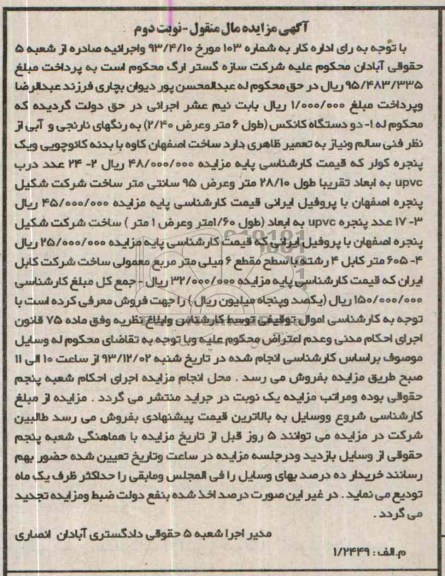 آگهی مزایده مال منقول - نوبت دوم
با توجه به رای اداره کار به شماره ۱۰۳ مورخ ۹۳/۴/۱۰ واجرائیه صادره از شعبه ۵
حقوقی آبادان محکوم علیه شرکت سازه گستر ارگ محکوم است به پرداخت مبلغ
۹۵/۴۸۳/۳۳۵ ریال در حق محکوم له عبدالمحسن پور دیوان بچاری فرزند عبدالرضا
وپرداخت مبلغ ۱/۰۰۰/۰۰۰ ریال بابت نیم عشر اجرائی در حق دولت گردیده که
محکوم له ۱- دو دستگاه کانکس (طول ۶ متر وعرض ۲/۴۰) به رنگهای نارنجی و آبی از
نظر فنی سالم ونیاز به تعمیر ظاهری دارد ساخت اصفهان کاوه با بدنه کانوچویی ویک
پنجره کولر که قیمت کارشناسی پایه مزایده ۴۸/۰۰۰/۰۰۰ ریال ۲- ۲۴ عدد درب
upvc به ابعاد تقریبا طول ۲۸/۱۰ متر وعرض ۹۵ سانتی متر ساخت شرکت شکیل
پنجره اصفهان با پروفیل ایرانی قیمت کارشناسی پایه مزایده ۴۵/۰۰۰/۰۰۰ ریال
۳- ۱۷ عدد پنجره upvc به ابعاد (طول ۱/۶۰متر وعرض ۱ متر ) ساخت شرکت شکیل
پنجره اصفهان با پروفیل ایرانی که قیمت کارشناسی پایه مزایده ۲۵/۰۰۰/۰۰۰ ریال
۴- ۶۰۵ متر کابل ۴ رشته با سطح مقطع ۶ میلی متر مربع معمولی ساخت شرکت کابل
ایران که قیمت کارشناسی پایه مزایده ۳۲/۰۰۰/۰۰۰ ریال - جمع کل مبلغ کارشناسی
۱۵۰/۰۰۰/۰۰۰ ریال (یکصد وپنجاه میلیون ریال) را جهت فروش معرفی کرده است با
توجه به کارشناسی اموال توقیفی توسط کارشناس وابلاغ نظریه وفق ماده ۷۵ قانون
اجرای احکام مدنی وعدم اعتراض محکوم علیه وبا توجه به تقاضای محکوم له وسایل
موصوف براساس کارشناسی انجام شده در تاریخ شنبه ۹۳/۱۲/۰۲ از ساعت ۱۰ الی ۱۱
صبح طریق مزایده بفروش می رسد . محل انجام مزایده اجرای احکام شعبه پنجم
حقوقی بوده ومراتب مزایده یک نوبت در جراید منتشر می گردد . مزایده از مبلغ
کارشناسی شروع ووسایل به بالاترین قیمت پیشنهادی بفروش می رسد طالبین
شرکت در مزایده می توانند ۵ روز قبل از تاریخ مزایده با هماهنگی شعبه پنجم
حقوقی از وسایل بازدید ودرجلسه مزایده در ساعت وتاریخ تعیین شده حضور بهم
رسانند خریدار ده درصد بهای وسایل را فی المجلس ومابقی را حداکثر ظرف یک ماه
تودیع می نماید . در غیر این صورت درصد اخذ شده بنفع دولت ضبط ومزایده تجدید
می گردد .
مدیر اجرا شعبه ۵ حقوقی دادگستری آبادان انصاری
م.الف : ۱/۲۴۴۹